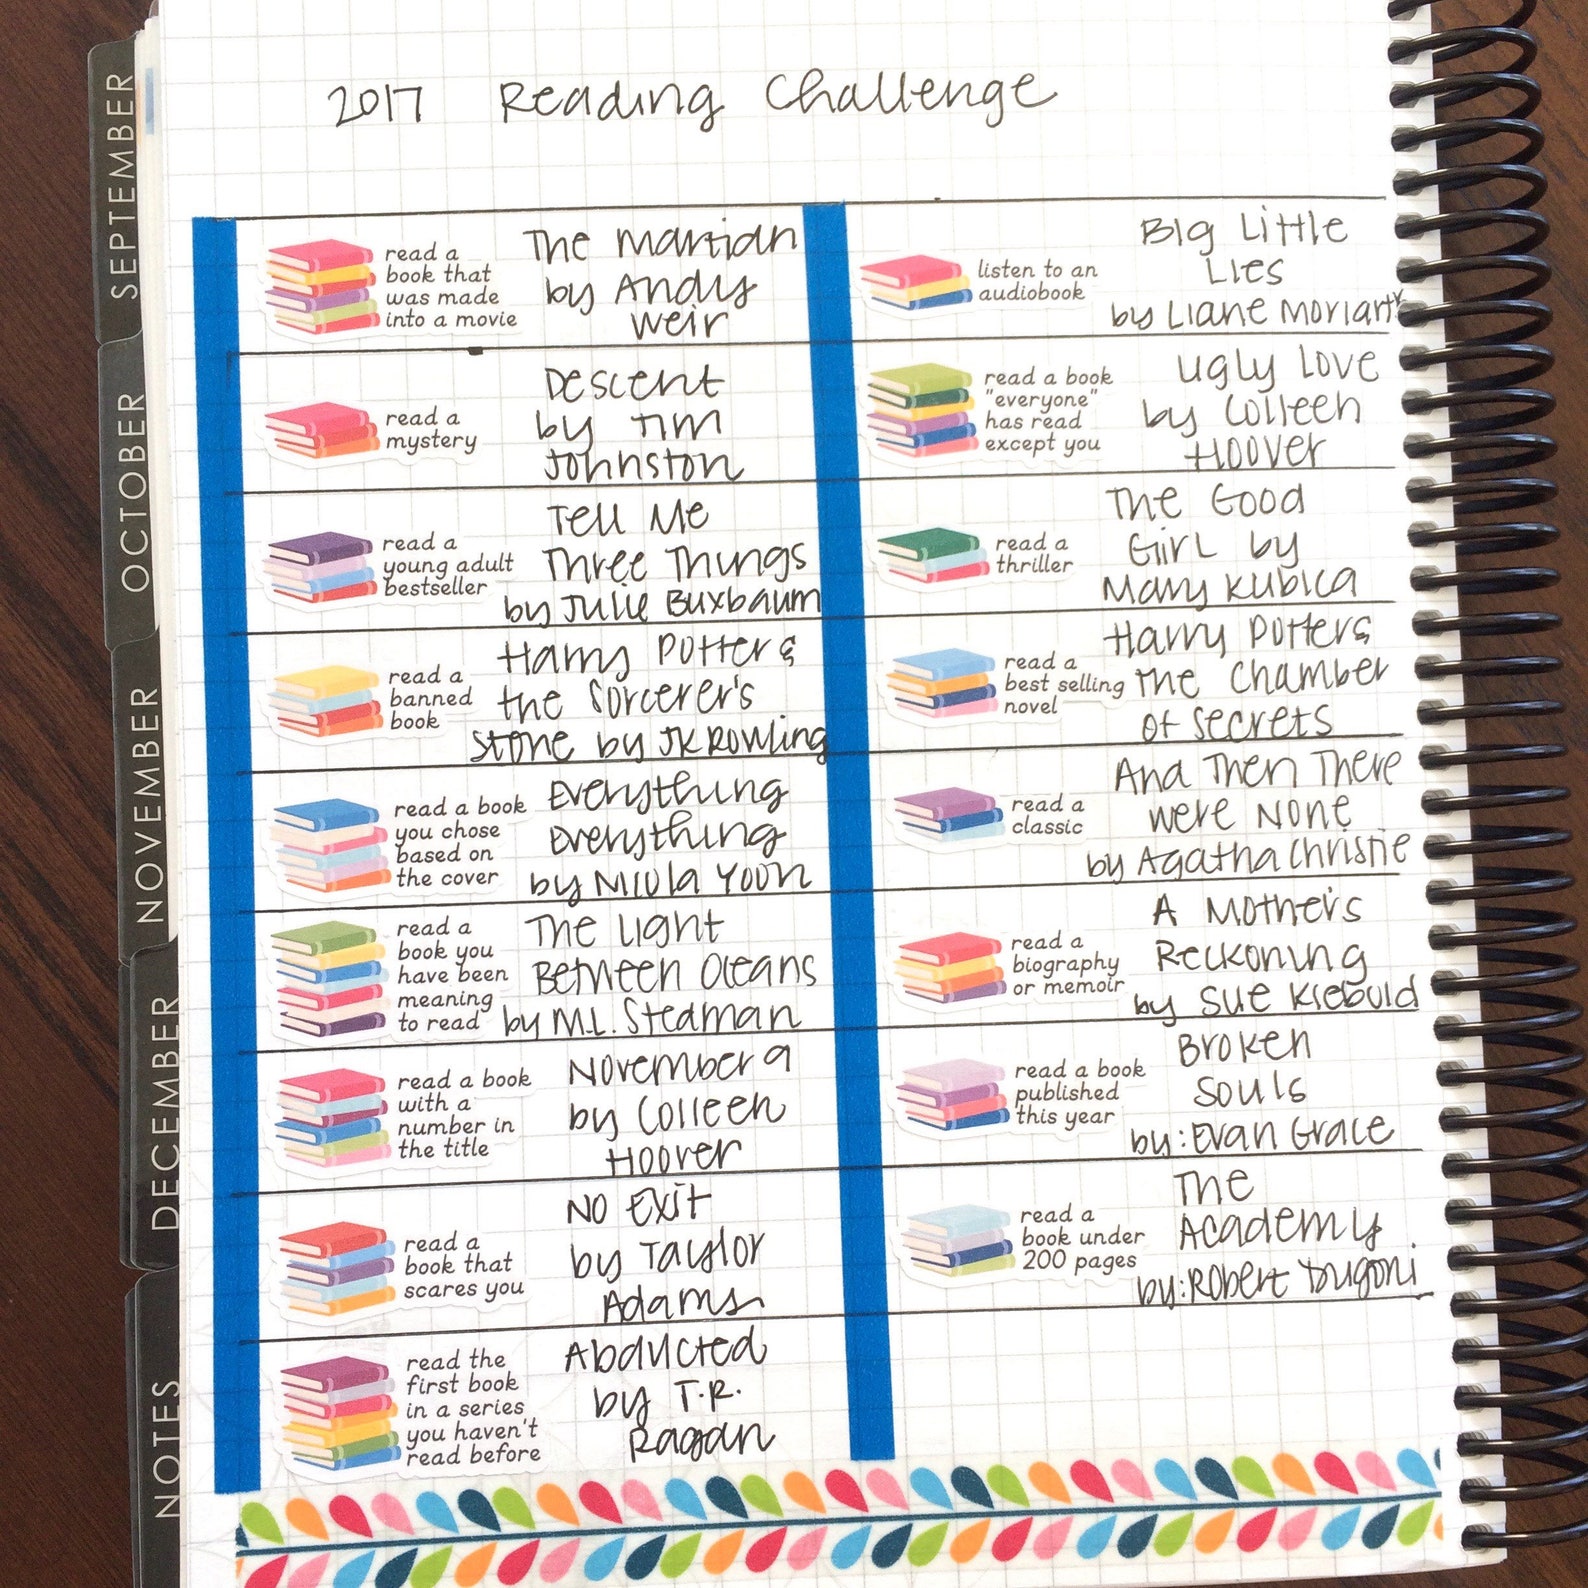 2017 Reading Challenge
SEPTEMBER
OCTOBER
NOVEMBER
DECEMBER
NOTES
read a
book that
was made
into a movie
The Martian
by Andy
Weir
read a
mystery
Descent
by Tim
Johnston
read a
young adult
bestseller
Tell Me
Three Things
by Julie Buxbaum
read a
banned
book
Harry Potter &
the Sorcerer's
Stone by JK Rowling
read a book
you chose
based on
the cover
Everything
Everything
by Nicola Yoon
read a
book you
have been
meaning
to read
The Light
Between Oceans
by M.L. Stedman
read a book
with a
number in
the title
November 9
by Colleen
Hoover
read a
book that
scares you
No Exit
by Taylor
Adams
read the
first book
in a series
you haven't
read before
Abducted
by T.R.
Ragan
listen to an
audiobook
Big Little
Lies
by Liane Moriarty
read a book
"everyone"
has read
except you
Ugly Love
by Colleen
Hoover
read a
thriller
The Good
Girl by
Mary Kubica
read a
best selling
novel
Harry Potter &
The Chamber
of Secrets
read a
classic
And Then There
Were None
by Agatha Christie
read a
biography
or memoir
A Mother's
Reckoning
by Sue Klebold
read a book
published
this year
Broken
Souls
by: Evan Grace
read a
book under
200 pages
The
Academy
by: Robert Dugoni